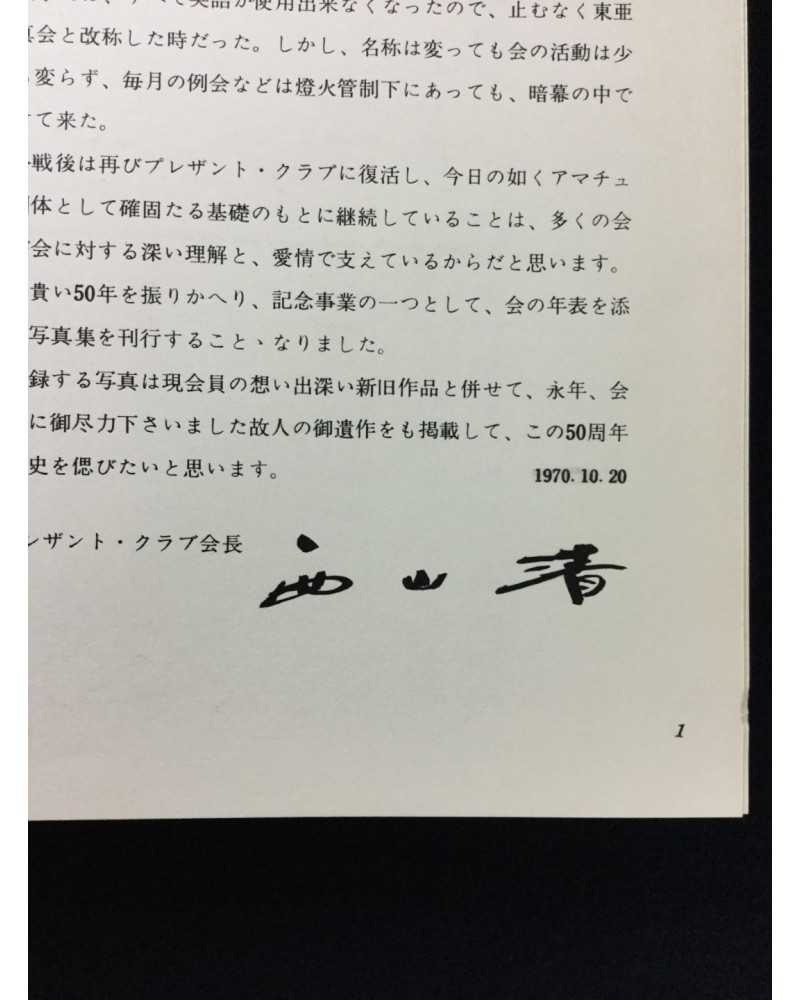 すべて英語が使用出来なくなったので、止むなく東亜
会と改称した時だった。しかし、名称は変っても会の活動は少
変らず、毎月の例会などは燈火管制下にあっても、暗幕の中で
て来た。
戦後は再びプレザント・クラブに復活し、今日の如くアマチュ
体として確固たる基礎のもとに継続していることは、多くの会
会に対する深い理解と、愛情で支えているからだと思います。
貴い50年を振りかへり、記念事業の一つとして、会の年表を添
写真集を刊行することゝなりました。
録する写真は現会員の想い出深い新旧作品と併せて、永年、会
に御尽力下さいました故人の御遺作をも掲載して、この50周年
史を偲びたいと思います。
1970. 10. 20
レザント・クラブ会長 西山清
1